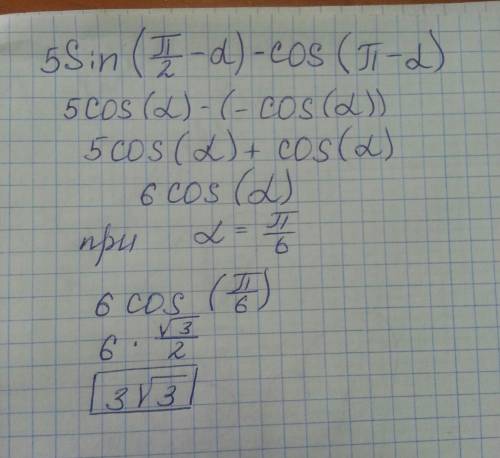 5Sin(π/2 - α) - cos(π - α)
5cos(α) - (-cos(α))
5cos(α) + cos(α)
6cos(α)
при α = π/6
6cos(π/6)
6 · √3/2
3√3